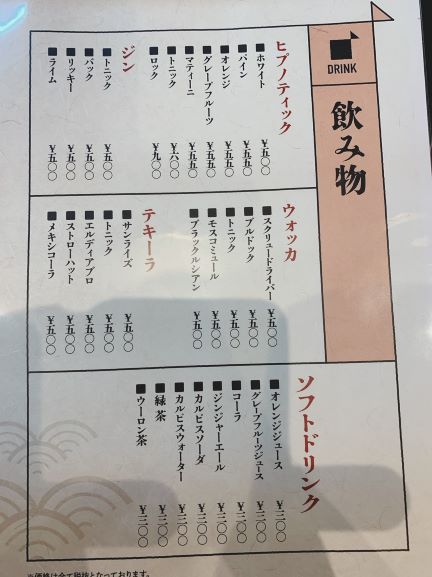 DRINK
飲み物
ヒプノティック
■ホワイト ¥五〇〇
■パイン ¥五五〇
■オレンジ ¥五五〇
■グレープフルーツ ¥五五〇
■マティーニ ¥五五〇
■トニック
■ロック ¥九〇〇
ジン
■トニック ¥五〇〇
■バック ¥五〇〇
■リッキー ¥五〇〇
■ライム ¥五〇〇
ウォッカ
■スクリュードライバー ¥五〇〇
■ブルドック ¥五〇〇
■トニック ¥五〇〇
■モスコミュール ¥五〇〇
■ブラックルシアン ¥五〇〇
テキーラ
■サンライズ ¥五〇〇
■トニック ¥五〇〇
■エルディアブロ ¥五〇〇
■ストローハット ¥五〇〇
■メキシコーラ ¥五〇〇
ソフトドリンク
■オレンジジュース ¥三〇〇
■グレープフルーツジュース ¥三〇〇
■コーラ ¥三〇〇
■ジンジャーエール ¥三〇〇
■カルピスソーダ ¥三〇〇
■カルピスウォーター ¥三〇〇
■緑茶 ¥三〇〇
■ウーロン茶 ¥三〇〇
※価格は全て税抜となっております。